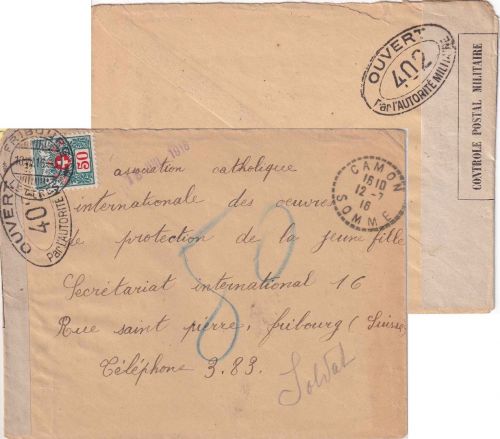 OUVERT
402
Par l'AUTORITÉ MILITAIRE
CONTROLE POSTAL MILITAIRE
FRIBOURG
50
OUVERT
40
Par l'AUTORITÉ
1916
CAMON
16 10
12 - 7
16
SOMME
association catholique
internationale des oeuvres
de protection de la jeune fille
Secrétariat international 16
Rue saint pierre, fribourg (Suisse
Téléphone 3.83.
50
Soldat